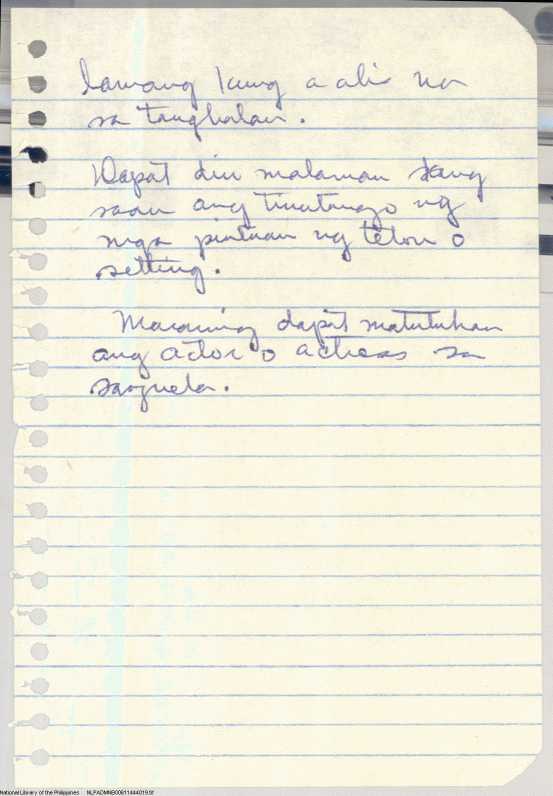 lamang kung aalis na
sa tanghalan.
Dapat din malaman kung
saan ang tinatungo ng
mga pintuan ng telon o
setting.
Maraming dapat matutuhan
ang actor o actress sa
sarzuela.
National Library of the Philippines NLPADMNB00811444019.tif